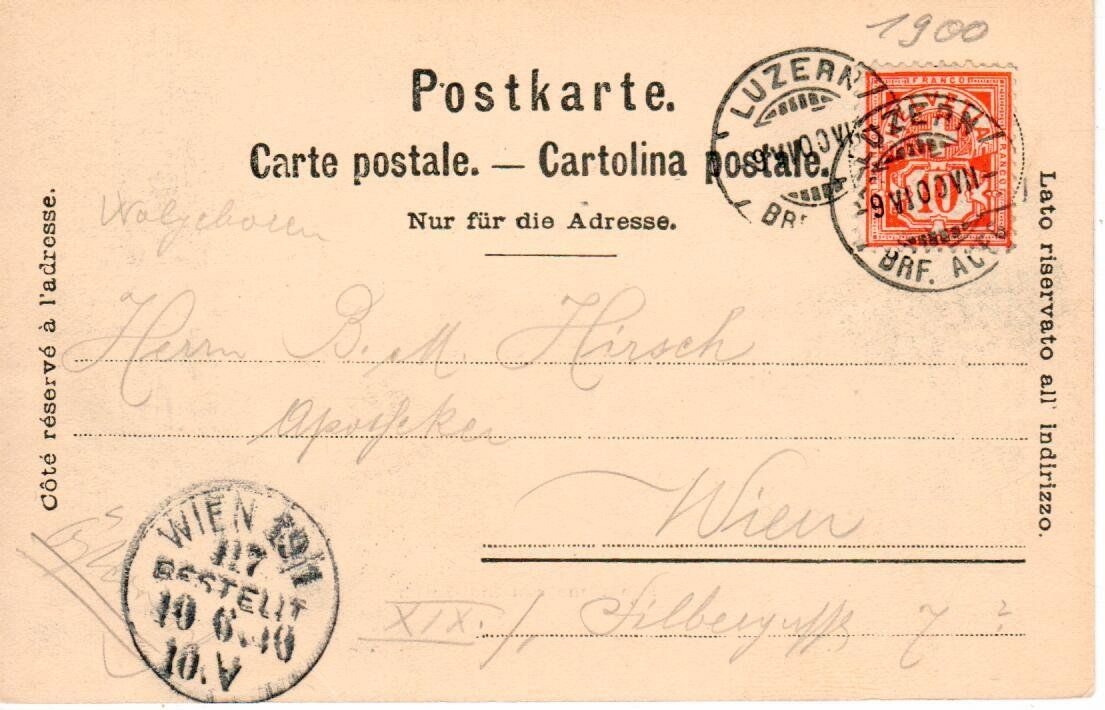 1900
Postkarte.
Carte postale. — Cartolina postale.
Nur für die Adresse.
Côté réservé à l'adresse.
Lato riservato all' indirizzo.
LUZERN
BRF.
LUZERN
BRF. ACG
FRANCO
10
Wolgeboren
Herrn B. M. Hirsch
Apotheker
Wien
XIX./1
7
WIEN 19/1
117
BESTELLT